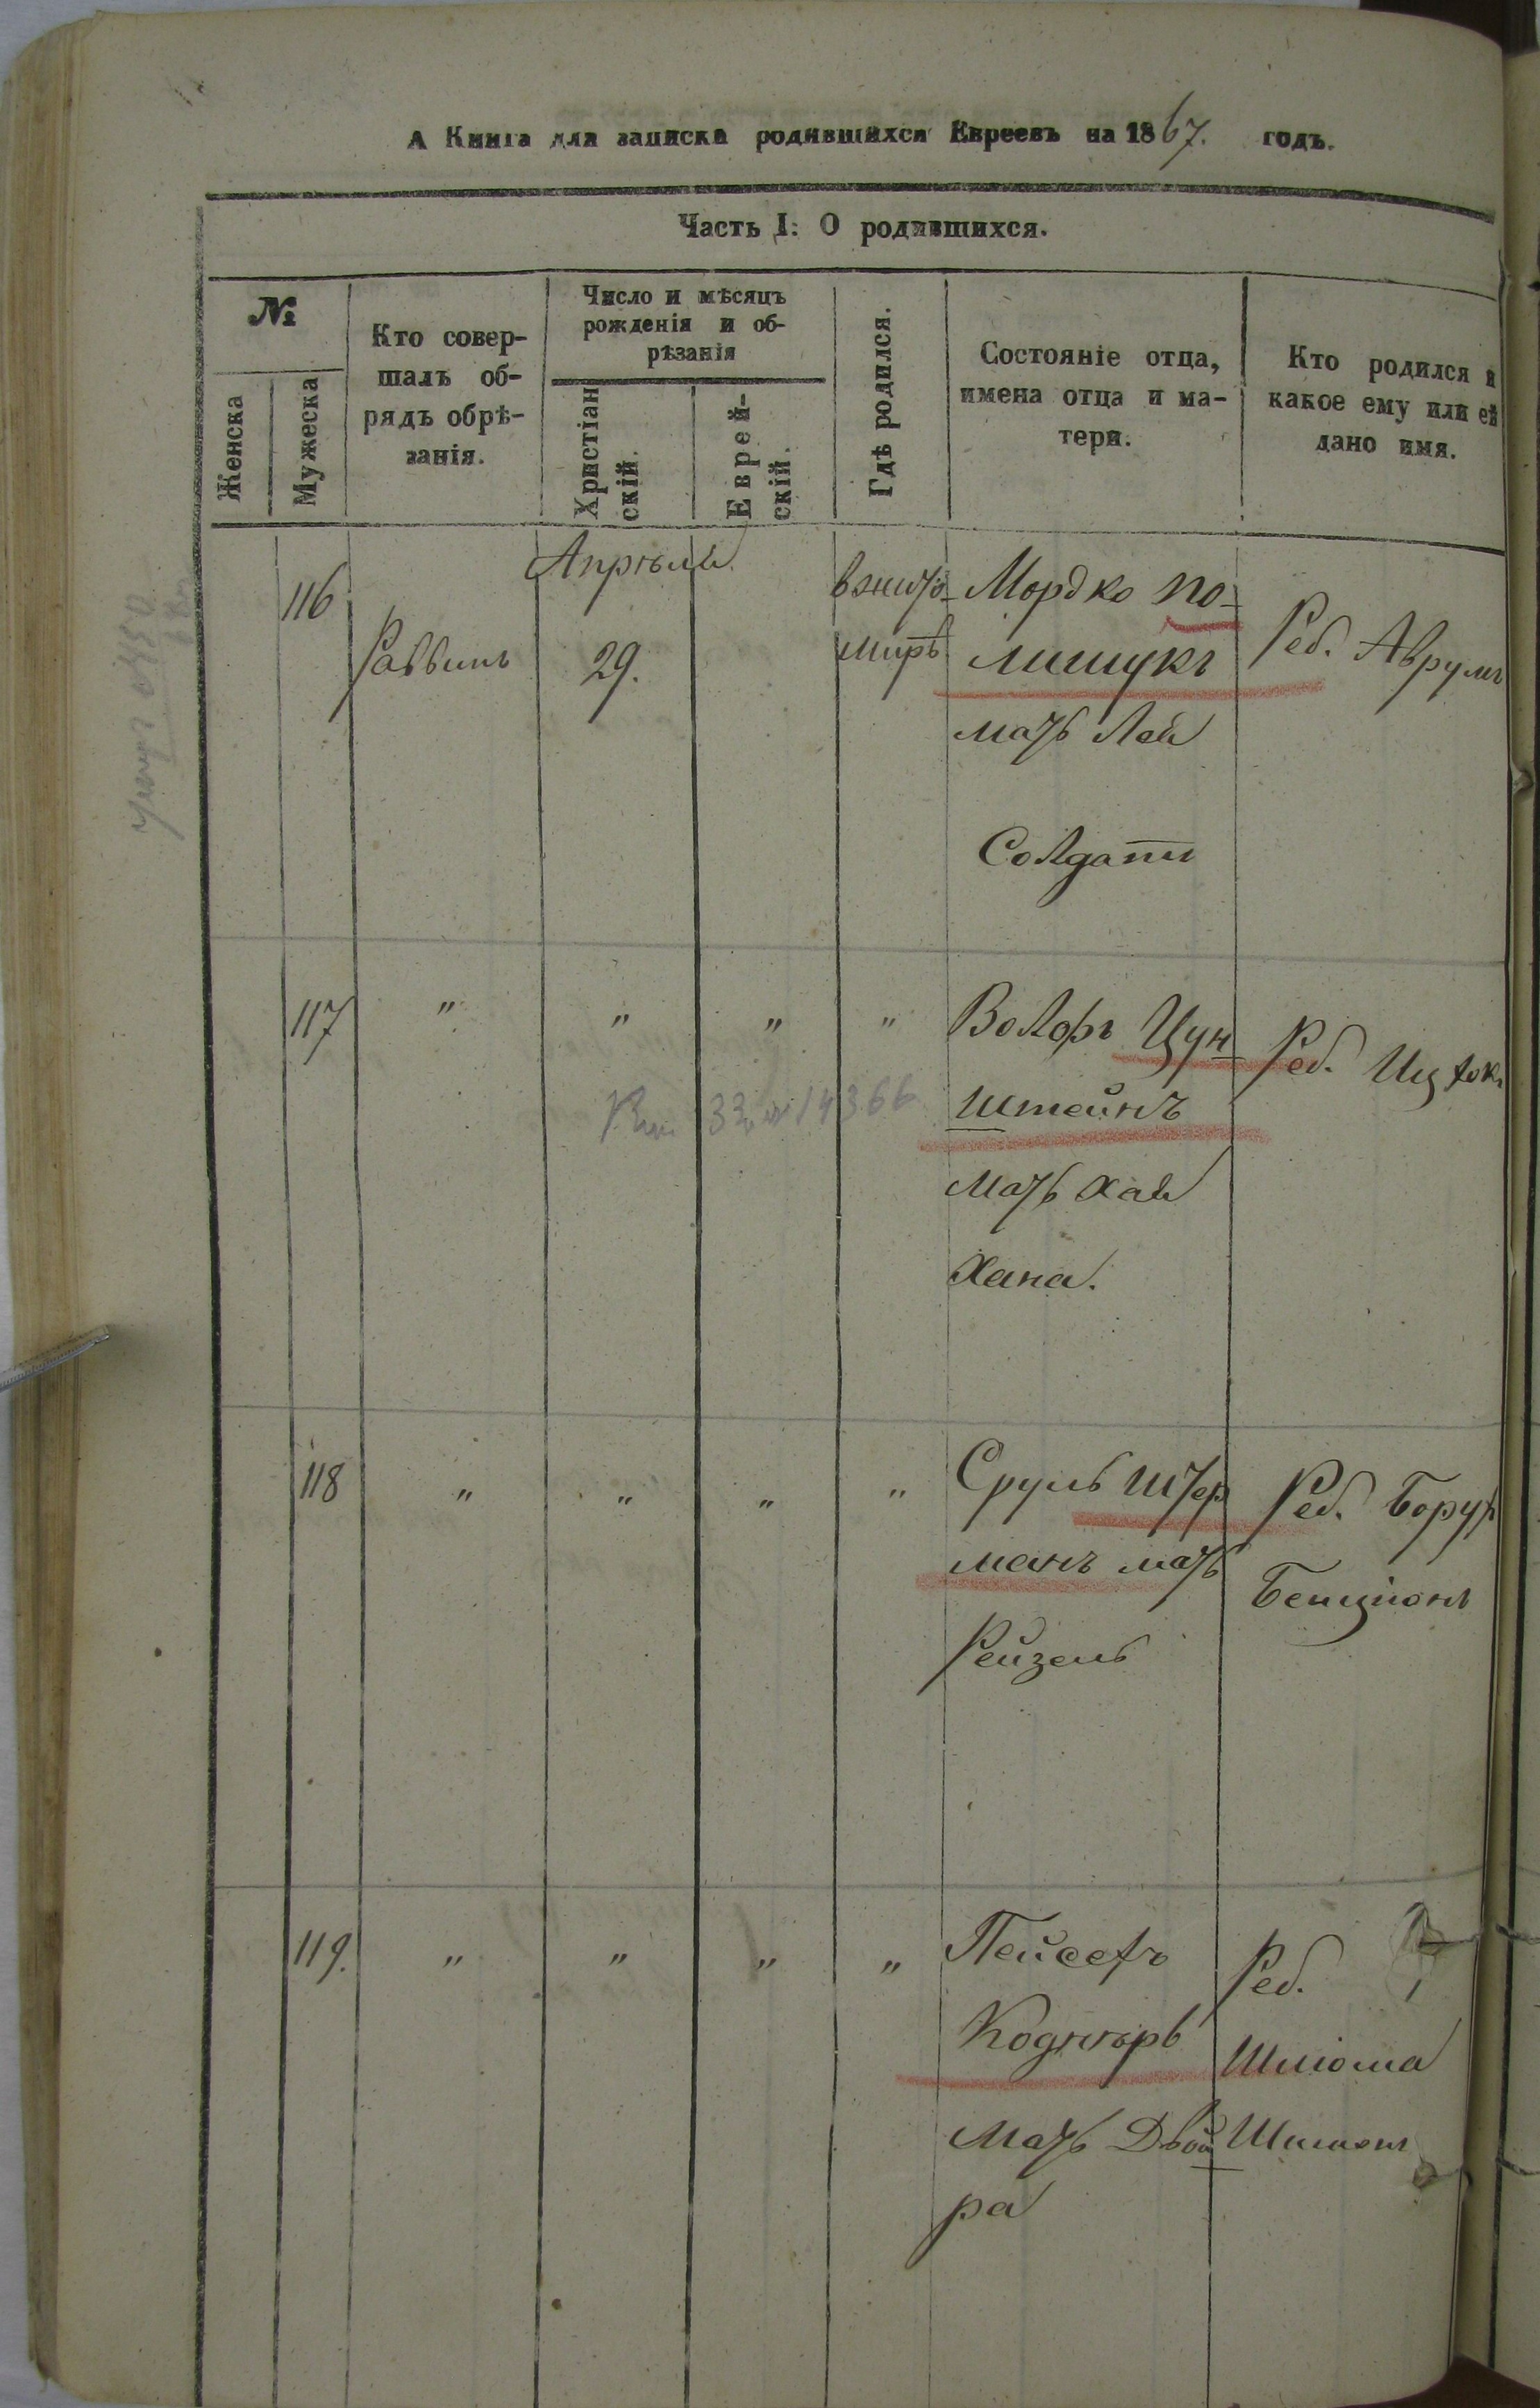 А Книга для записки родившихся Евреевъ на 1867. годъ.
Часть I: О родившихся.
№
Женска
Мужеска
Кто совер-
шалъ об-
рядъ обрѣ-
занія.
Число и мѣсяцъ
рожденія и об-
рѣзанія
Христіан
скій.
Еврей-
скій.
Гдѣ родился.
Состояніе отца,
имена отца и ма-
тери.
Кто родился и
какое ему или ей
дано имя.
Апрѣля
116
Раввинъ
29.
в жито-
мирѣ
Мордко По-
лищукъ
мать Лея
Солдатъ
Реб. Аврумъ
117 " " " "
Волфъ Цун
штейнъ
Мать Хая
Хана.
Реб. Ицхокъ
14366
118 " " " "
Сруль Штер
манъ мать
Рейзель
Реб. Борух
Бенціонъ
119. " " " "
Пейсехъ
Коднѣръ
Мать Двой
ра
Реб.
Шліома
Шимонъ